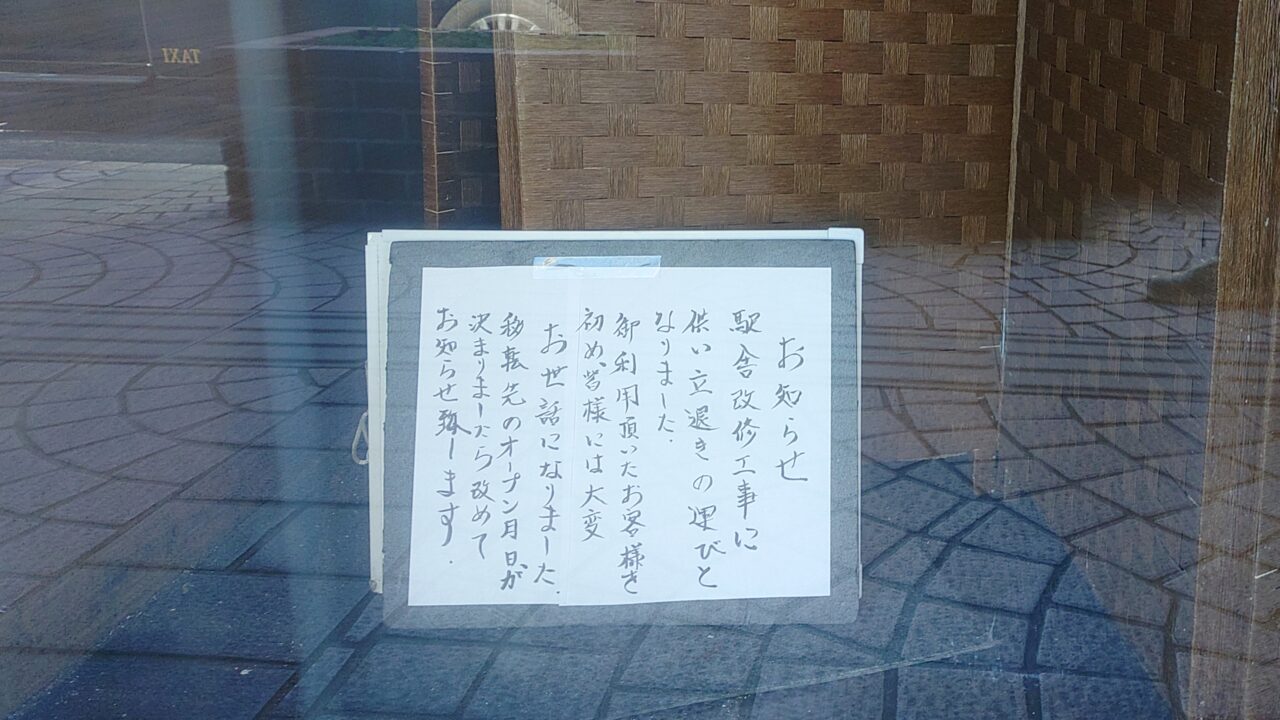 お知らせ
駅舎改修工事に
供い立退きの運びと
なりました.
御利用頂いたお客様を
初め、皆様には大変
お世話になりました.
移転先のオープン月日が
決まりましたら改めて
お知らせ致します.
TAXI